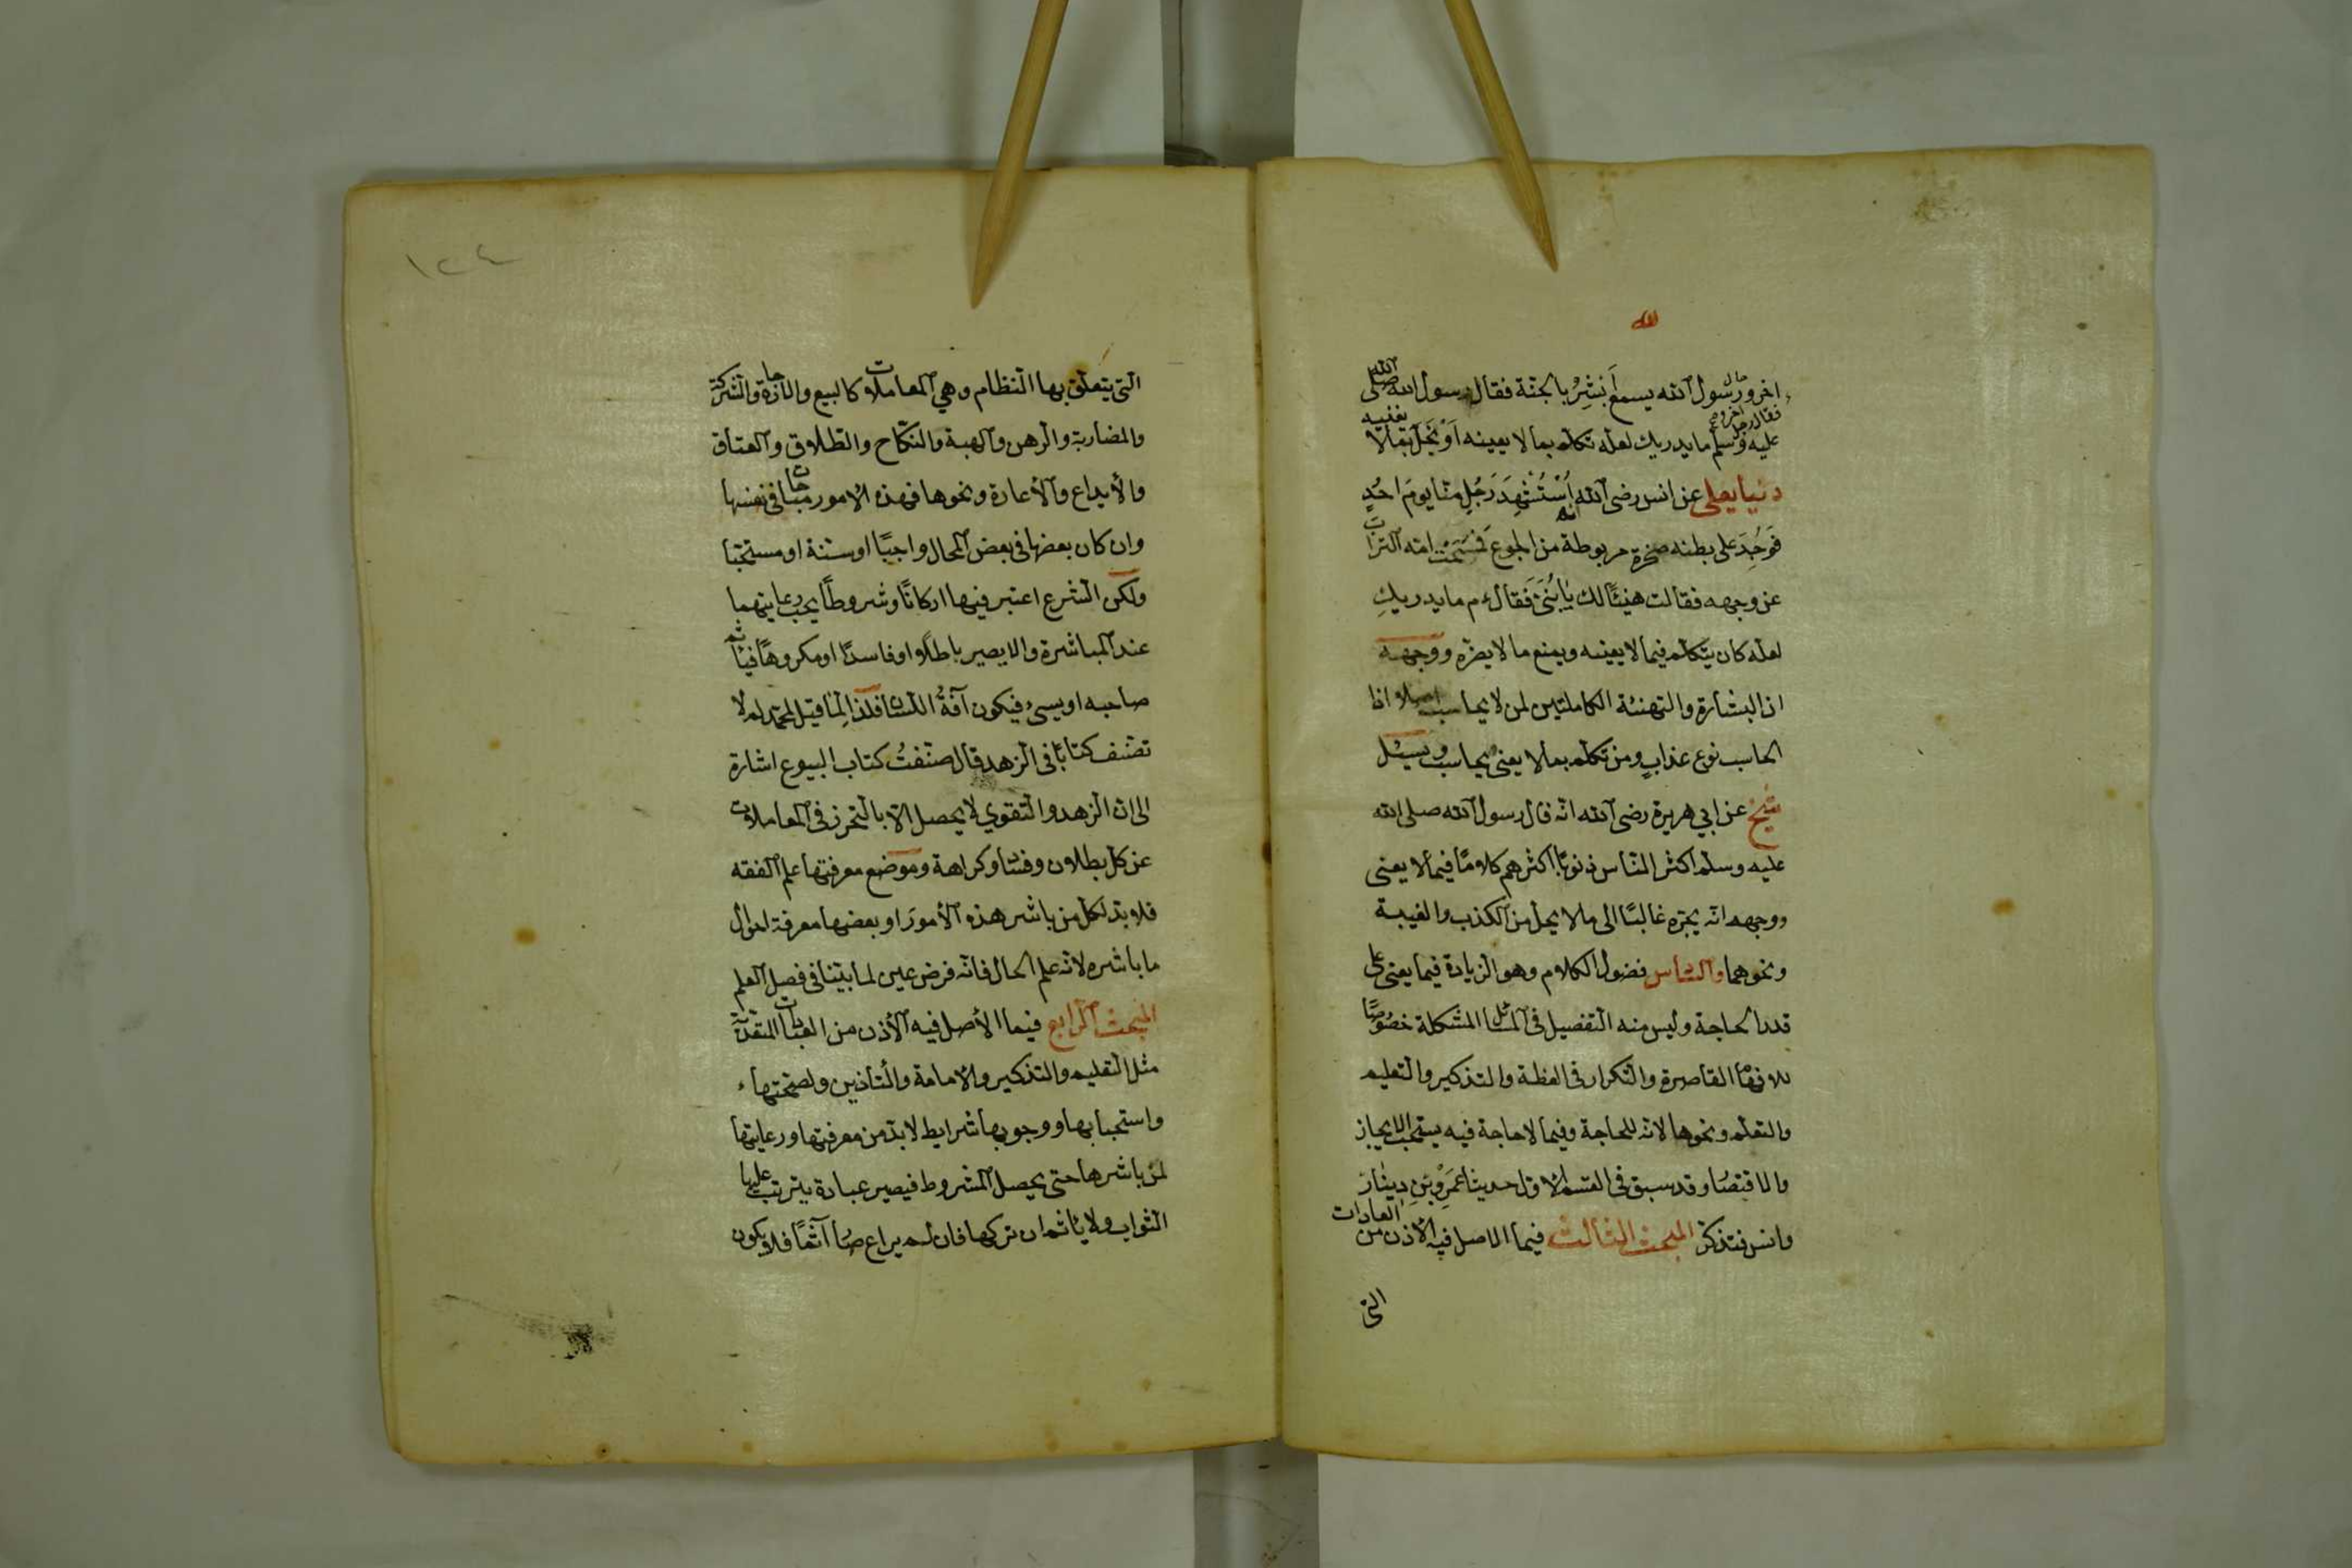 الله
اخر ورسول الله يسمع اَبْشِرْ بالجنّة فقال رسول الله صلى الله
عليه وسلم ما يدريك لعله تكلم بما لا يعينه اَوْ بَخِلَ بما لا يغنيه
دنيا يعلى عن انس رضى الله انه اُسْتُشْهِدَ رَجُل منّا يومَ احُدٍ
فَوُجِدَ على بطنه صخرة مربوطة من الجوع فمَسَحَتْ امّه التراب
عن وجهه فقالت هنيئًا لك يا بُنَىَّ فَقال عم ما يدريكِ
لعله كان يتكلم فيما لا يعينه ويمنع ما لا يضرّه ووجهه
ان البشارة والتهنئة الكاملتين لمن لا يحاسب اصلا اذا
الحاسب نوع عذابٍ ومن تكلم بما لا يعنى يحاسب ويسئل
شيخ عن ابي هريرة رضى الله انّه قال رسول الله صلى الله
عليه وسلم اكثر النّاس ذنوبًا اكثرهم كلامًا فيما لا يعنى
ووجهه انّه يجرّه غالبًا الى ما لا يحل من الكذب والغيبة
ونحوهما والسّادس فضول الكلام وهو الزيادة فيما يعنى على
قدر الحاجة وليس منه التفصيل فى المسائل المشكلة خصوصًا
للافهام القاصرة والتكرار فى العظة والتذكير والتعليم
والتعلّم ونحوها لانه للحاجة وفيما لا حاجة فيه يستحبّ الايجاز
والاقتصار وقد سبق فى القسم الاول حديثا عَمْرِو بْنِ دينار
وانس فتذكر المبحث الثالث فيما الاصل فيه الاذن من العادات
التى
١٢٤
التى يتعلق بها النظام وهي المعاملات كالبيع والاجارة والشركة
والمضاربة والرهن والهبة والنكاح والطلاق والعتاق
والايداع والاعارة ونحوها فهذه الامور مباحات فى نفسها
وان كان بعضها فى بعض المحال واجبًا او سنة او مستحبّا
ولكن الشرع اعتبر فيها اركانًا وشروطًا يجب رعايتهما
عند المباشرة والا يصير باطلًا او فاسدًا او مكروهًا فيأثم
صاحبه او يسئ فيكون آفةُ اللسان فلذا لِما قيل لمحمّد لم لا
تصنف كتابًا فى الزهد قال صنّفتُ كتاب البيوع اشارة
الى ان الزهد والتقوي لا يحصل الا بالتحرز فى المعاملات
عن كل بطلان وفساد وكراهة وموضع معرفتها علم الفقه
فلا بدّ لكل من باشر هذه الأمورَ او بعضها معرفة احوال
ما باشره لانّه علم الحال فانّه فرض عين لما بيّنا فى فصل العلم
المبحث الرابع فيما الأصل فيه الأذن من العبادات المتقدّمة
مثل التعليم والتذكير والامامة والتأذين ولصحّتها
واستحبابها ووجوبها شرايط لا بدّ من معرفتها ورعايتها
لمن باشرها حتى يحصل المشروط فيصير عبادة يترتب عليها
الثواب ولا يأثم ان تركها فان لم يراع صار آثمًا فلا يكون